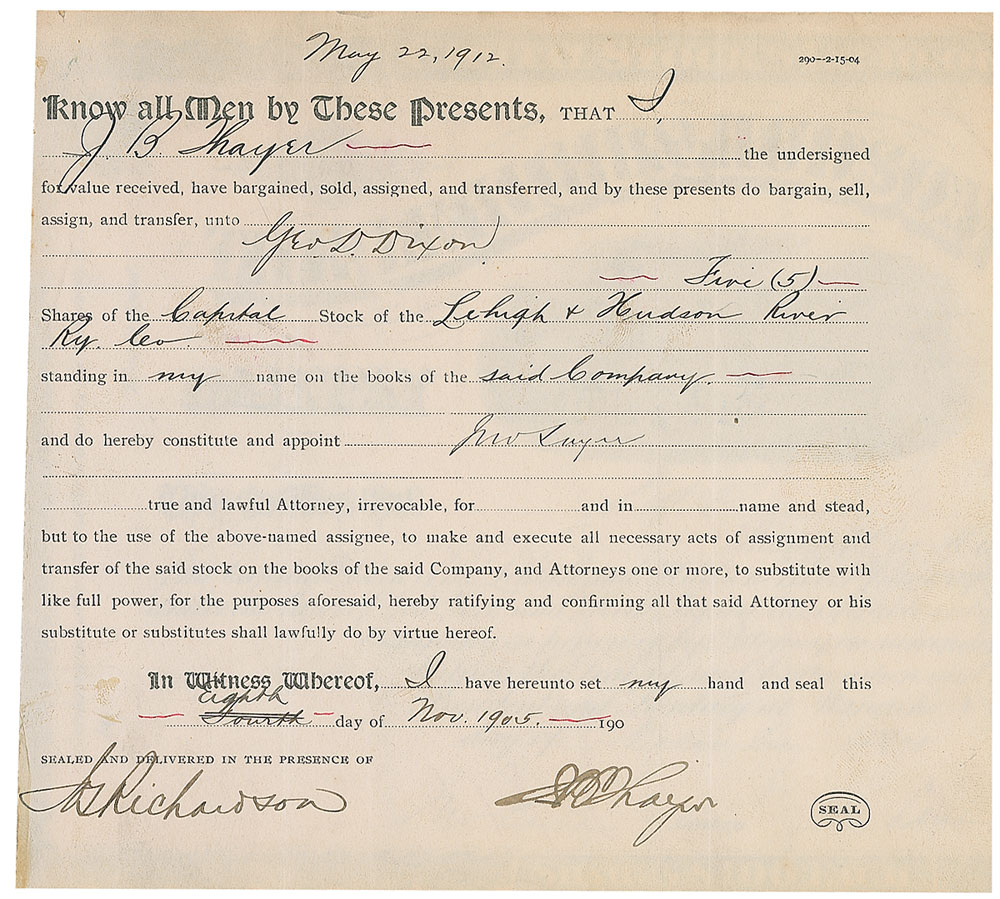 May 22, 1912.
290--2-15-04
Know all Men by These Presents, THAT I,
J. B. Thayer the undersigned
for value received, have bargained, sold, assigned, and transferred, and by these presents do bargain, sell,
assign, and transfer, unto
Geo. D. Dixon
Five (5)
Shares of the Capital Stock of the Lehigh & Hudson River
Ry. Co.
standing in my name on the books of the said Company.
and do hereby constitute and appoint
true and lawful Attorney, irrevocable, for and in name and stead,
but to the use of the above-named assignee, to make and execute all necessary acts of assignment and
transfer of the said stock on the books of the said Company, and Attorneys one or more, to substitute with
like full power, for the purposes aforesaid, hereby ratifying and confirming all that said Attorney or his
substitute or substitutes shall lawfully do by virtue hereof.
In Witness Whereof, I have hereunto set my hand and seal this
Eighth
Fourth day of Nov. 1905. 190
SEALED AND DELIVERED IN THE PRESENCE OF
Richardson
J B Thayer
SEAL